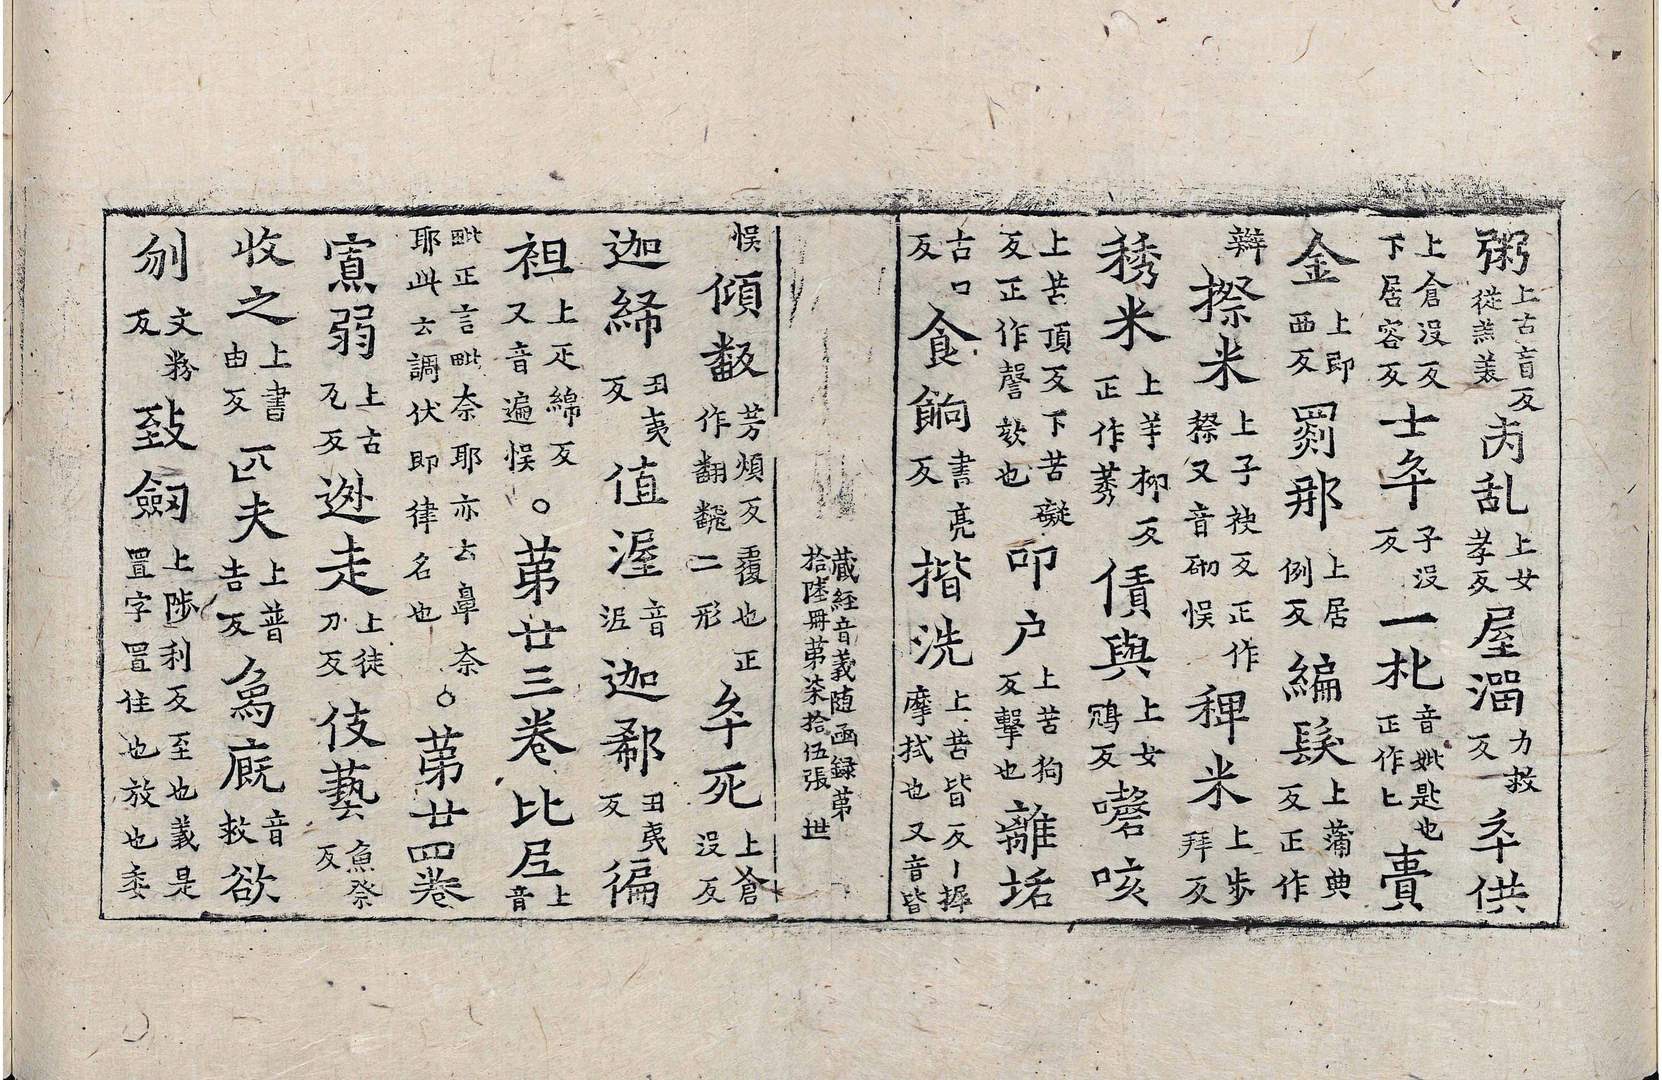 粥上古盲反從羔䒑丙乱上女孝反屋溜力救反卒供
上倉没反下居容反士卒子没反一朼音妣匙也正作匕賷
金上即西反罽那上居例反編髮上蒲典反正作
辮摖米上子袂反正作穄又音砌悮稗米上步拜反
莠米上羊柳反正作莠債與上女㓇反嚽咳
上苦頂反下苦礙反正作謦欬也叩户上苦狗反擊也離垢
古口反食餉書亮反揩洗上苦皆反丨揩摩拭也又音皆
藏經音義随函録第
拾陸冊第柒拾伍張 世
悮傾飜芳煩反覆也正作翻飜二形卒死上倉没反
迦絺丑夷反值渥音泥迦郗丑夷反徧
袒上疋綿反又音遍悮。第廿三卷比尼上音
毗正言毗奈耶亦云鼻奈耶此云調伏即律名也。第廿四卷
寡弱上古瓦反迯走上徒刀反伎藝魚祭反
收之上書由反匹夫上普吉反爲廐音救欲
刎文粉反致劒上陟利反至也義是置字置住也放也委